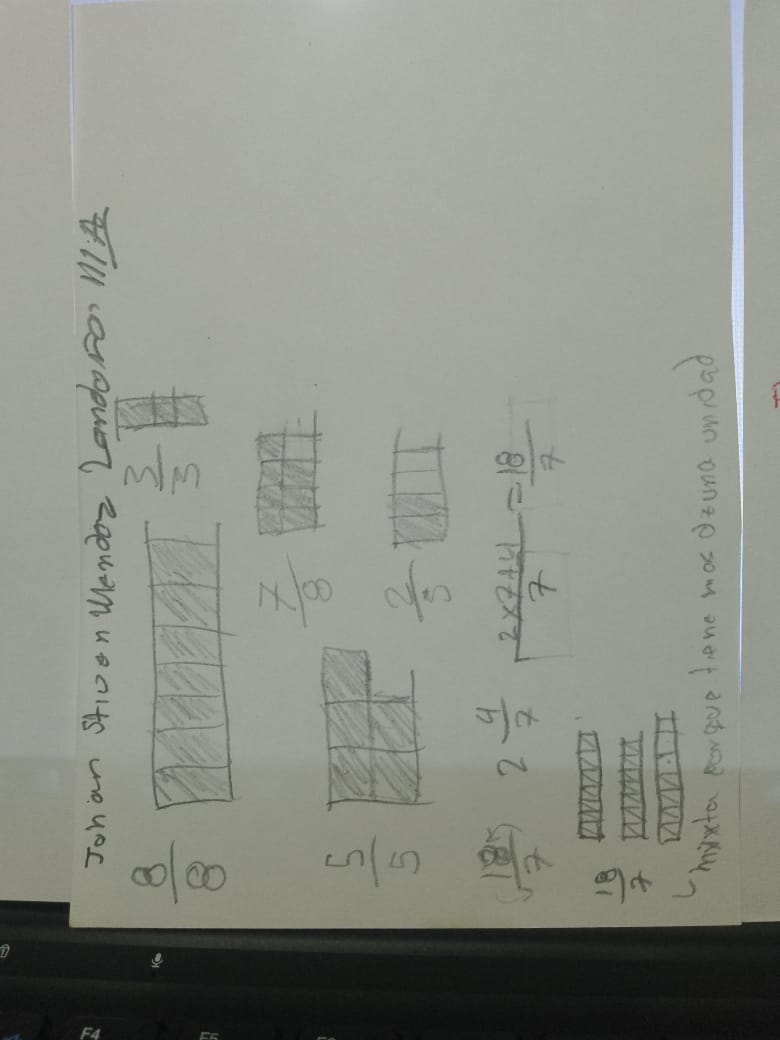 Johan Stiven Mendoz Londono. M:A
8/8 3/3
7/8
5/5 2/5
(18/7) 2 4/7 2x7+4/7 = 18/7
18/7
↳ mixta porque tiene mas dzuna unidad
F4
F5